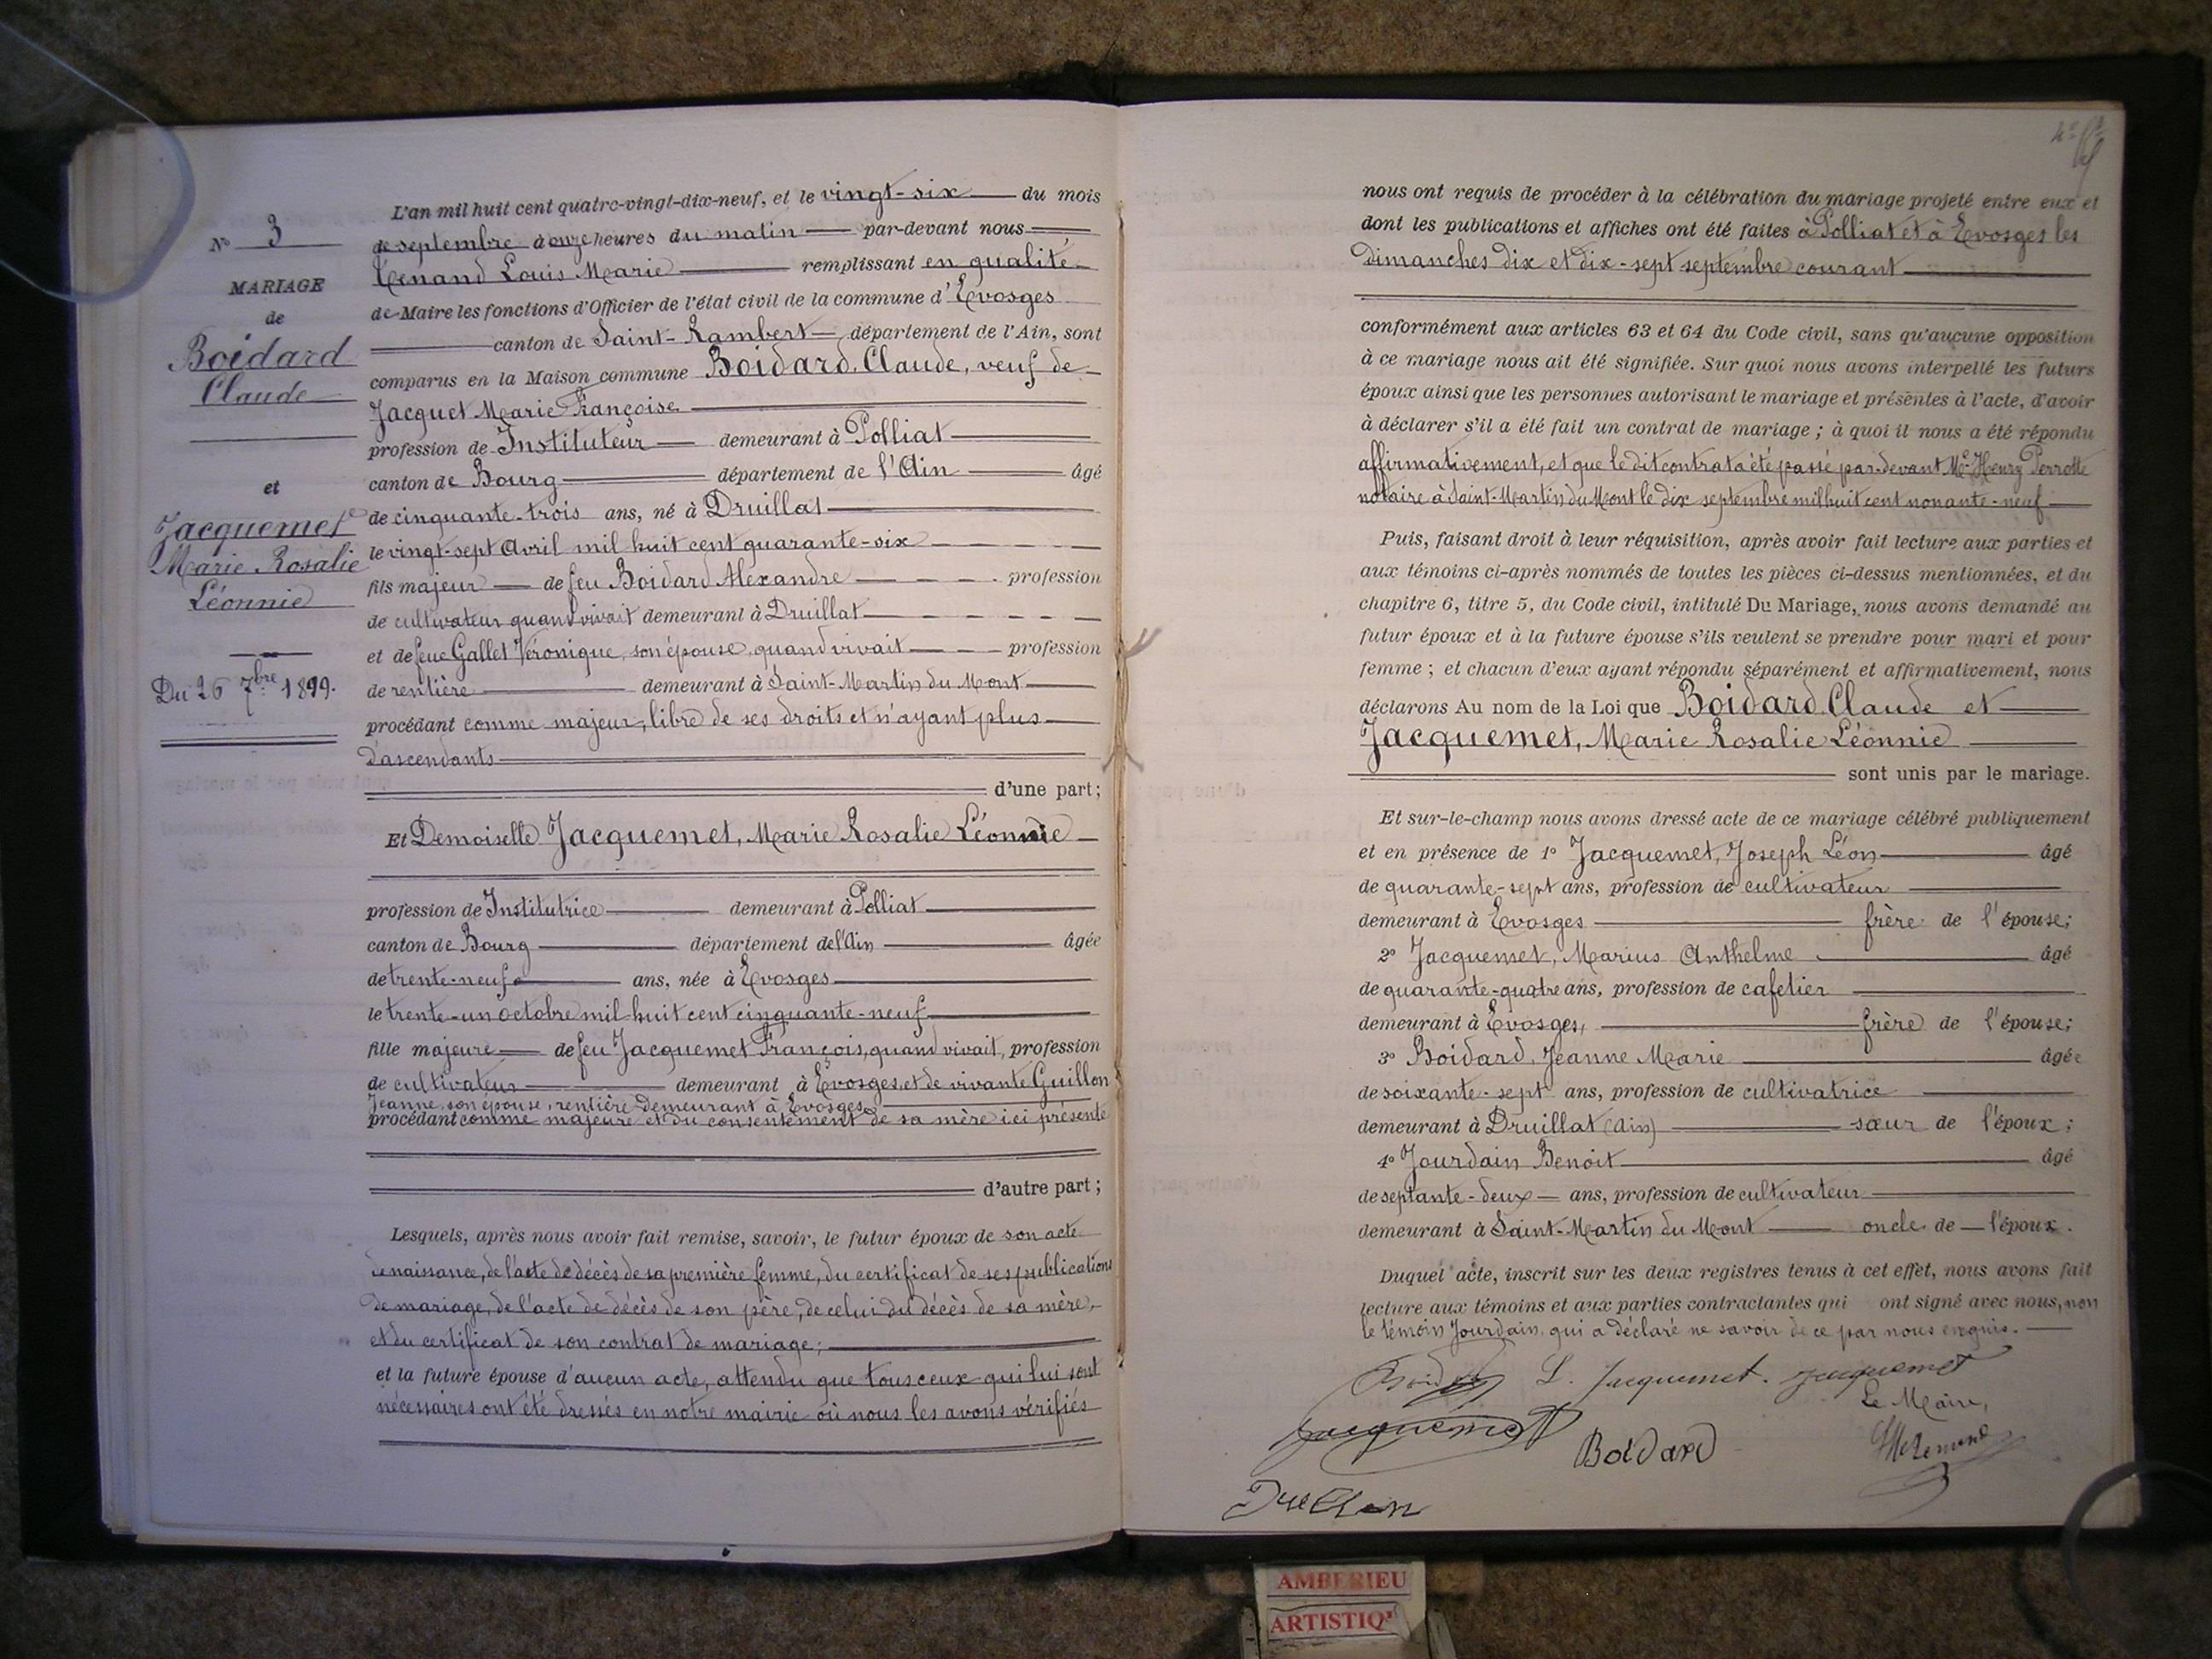 N° 3
MARIAGE
de
Boidard
Claude
et
Jacquemet
Marie Rosalie
Léonnie
Du 26 7bre 1899.
L'an mil huit cent quatre-vingt-dix-neuf, et le vingt-six du mois
de septembre à onze heures du matin par-devant nous
Louis Marie remplissant en qualité
de Maire les fonctions d'Officier de l'état civil de la commune d'Evosges
canton de Saint-Rambert département de l'Ain, sont
comparus en la Maison commune Boidard, Claude, veuf de
Jacquet Marie Françoise
profession de Instituteur demeurant à Polliat
canton de Bourg département de l'Ain âgé
de cinquante-trois ans, né à Druillat
le vingt-sept Avril mil huit cent quarante-six
fils majeur de feu Boidard Alexandre profession
de cultivateur quand vivait demeurant à Druillat
et de feue Gallet Véronique, son épouse, quand vivait profession
de rentière demeurant à Saint-Martin du Mont
procédant comme majeur, libre de ses droits et n'ayant plus
d'ascendants
d'une part;
Et Demoiselle Jacquemet, Marie Rosalie Léonnie
profession de Institutrice demeurant à Polliat
canton de Bourg département de l'Ain âgée
de trente-neuf ans, née à Evosges
le trente-un octobre mil huit cent cinquante-neuf
fille majeure de feu Jacquemet François, quand vivait, profession
de cultivateur demeurant à Evosges, et de vivante Guillon
Jeanne, son épouse, rentière demeurant à Evosges
procédant comme majeure et du consentement de sa mère ici présente
d'autre part;
Lesquels, après nous avoir fait remise, savoir, le futur époux de son acte
de naissance, de l'acte de décès de sa première femme, du certificat de ses publications
de mariage, de l'acte de décès de son père, de celui du décès de sa mère,
et du certificat de son contrat de mariage;
et la future épouse d'aucun acte, attendu que tous ceux qui lui sont
nécessaires ont été dressés en notre mairie où nous les avons vérifiés
nous ont requis de procéder à la célébration du mariage projeté entre eux et
dont les publications et affiches ont été faites à Polliat et à Evosges les
dimanches dix et dix-sept septembre courant
conformément aux articles 63 et 64 du Code civil, sans qu'aucune opposition
à ce mariage nous ait été signifiée. Sur quoi nous avons interpellé les futurs
époux ainsi que les personnes autorisant le mariage et présentes à l'acte, d'avoir
à déclarer s'il a été fait un contrat de mariage; à quoi il nous a été répondu
affirmativement, et que le dit contrat a été passé par-devant Me Henry Perrotte
notaire à Saint-Martin du Mont le dix septembre mil huit cent nonante-neuf
Puis, faisant droit à leur réquisition, après avoir fait lecture aux parties et
aux témoins ci-après nommés de toutes les pièces ci-dessus mentionnées, et du
chapitre 6, titre 5, du Code civil, intitulé Du Mariage, nous avons demandé au
futur époux et à la future épouse s'ils veulent se prendre pour mari et pour
femme; et chacun d'eux ayant répondu séparément et affirmativement, nous
déclarons Au nom de la Loi que Boidard, Claude et
Jacquemet, Marie Rosalie Léonnie
sont unis par le mariage.
Et sur-le-champ nous avons dressé acte de ce mariage célébré publiquement
et en présence de 1° Jacquemet, Joseph Léon âgé
de quarante-sept ans, profession de cultivateur
demeurant à Evosges frère de l'épouse;
2° Jacquemet, Marius Anthelme âgé
de quarante-quatre ans, profession de cafetier
demeurant à Evosges, frère de l'épouse;
3° Boidard, Jeanne Marie âgée
de soixante-sept ans, profession de cultivatrice
demeurant à Druillat (Ain) sœur de l'époux;
4° Jourdain Benoit âgé
de septante-deux ans, profession de cultivateur
demeurant à Saint-Martin du Mont oncle de l'époux.
Duquel acte, inscrit sur les deux registres tenus à cet effet, nous avons fait
lecture aux témoins et aux parties contractantes qui ont signé avec nous, non
le témoin Jourdain, qui a déclaré ne savoir de ce par nous enquis.
L. Jacquemet. Jacquemet
Le Maire,
Jacquemet Boidard
AMBERIEU
ARTISTIQ